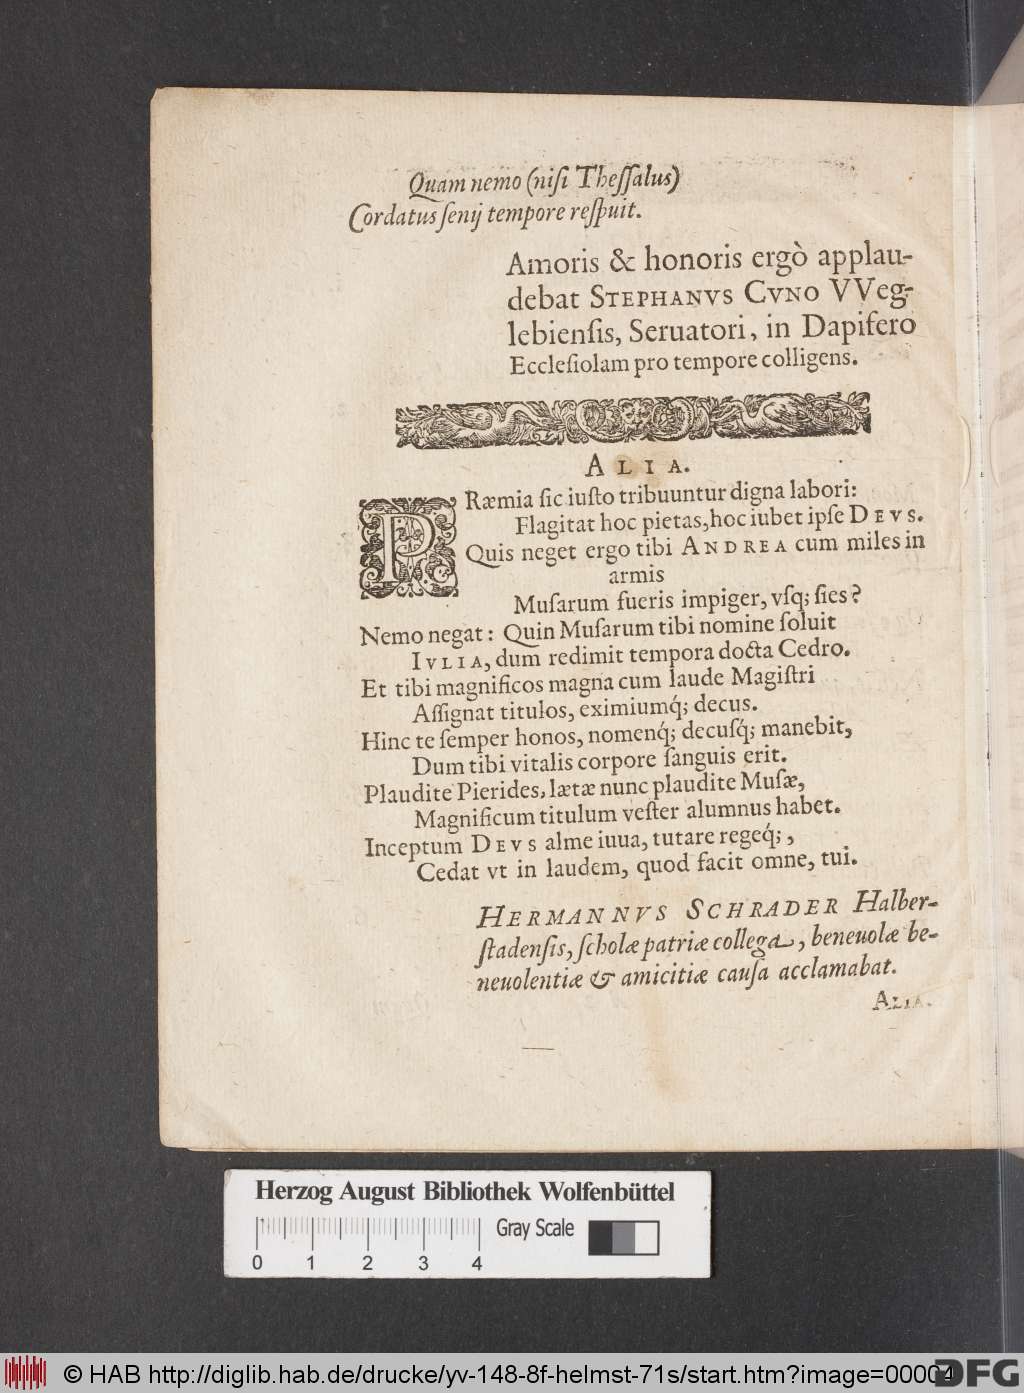 Quam nemo (niſi Theſſalus)
Cordatus ſenij tempore reſpuit.
Amoris & honoris ergò applau-
debat STEPHANVS CVNO VVeg-
lebienſis, Seruatori, in Dapifero
Eccleſiolam pro tempore colligens.
ALIA.
PRæmia ſic iuſto tribuuntur digna labori:
Flagitat hoc pietas, hoc iubet ipſe DEVS.
Quis neget ergo tibi ANDREA cum miles in
armis
Muſarum fueris impiger, vſq; ſies?
Nemo negat: Quin Muſarum tibi nomine ſoluit
IVLIA, dum redimit tempora docta Cedro.
Et tibi magnificos magna cum laude Magiſtri
Aſſignat titulos, eximiumq́; decus.
Hinc te ſemper honos, nomenq́; decuſq́; manebit,
Dum tibi vitalis corpore ſanguis erit.
Plaudite Pierides, lætæ nunc plaudite Muſæ,
Magnificum titulum veſter alumnus habet.
Inceptum DEVS alme iuua, tutare regeq́;,
Cedat vt in laudem, quod facit omne, tui.
HERMANNVS SCHRADER Halber-
ſtadenſis, ſcholæ patriæ collega, beneuolæ be-
neuolentiæ & amicitiæ cauſa acclamabat.
ALIA.
Herzog August Bibliothek Wolfenbüttel
Gray Scale
0 1 2 3 4
© HAB http://diglib.hab.de/drucke/yv-148-8f-helmst-71s/start.htm?image=00004
DFG